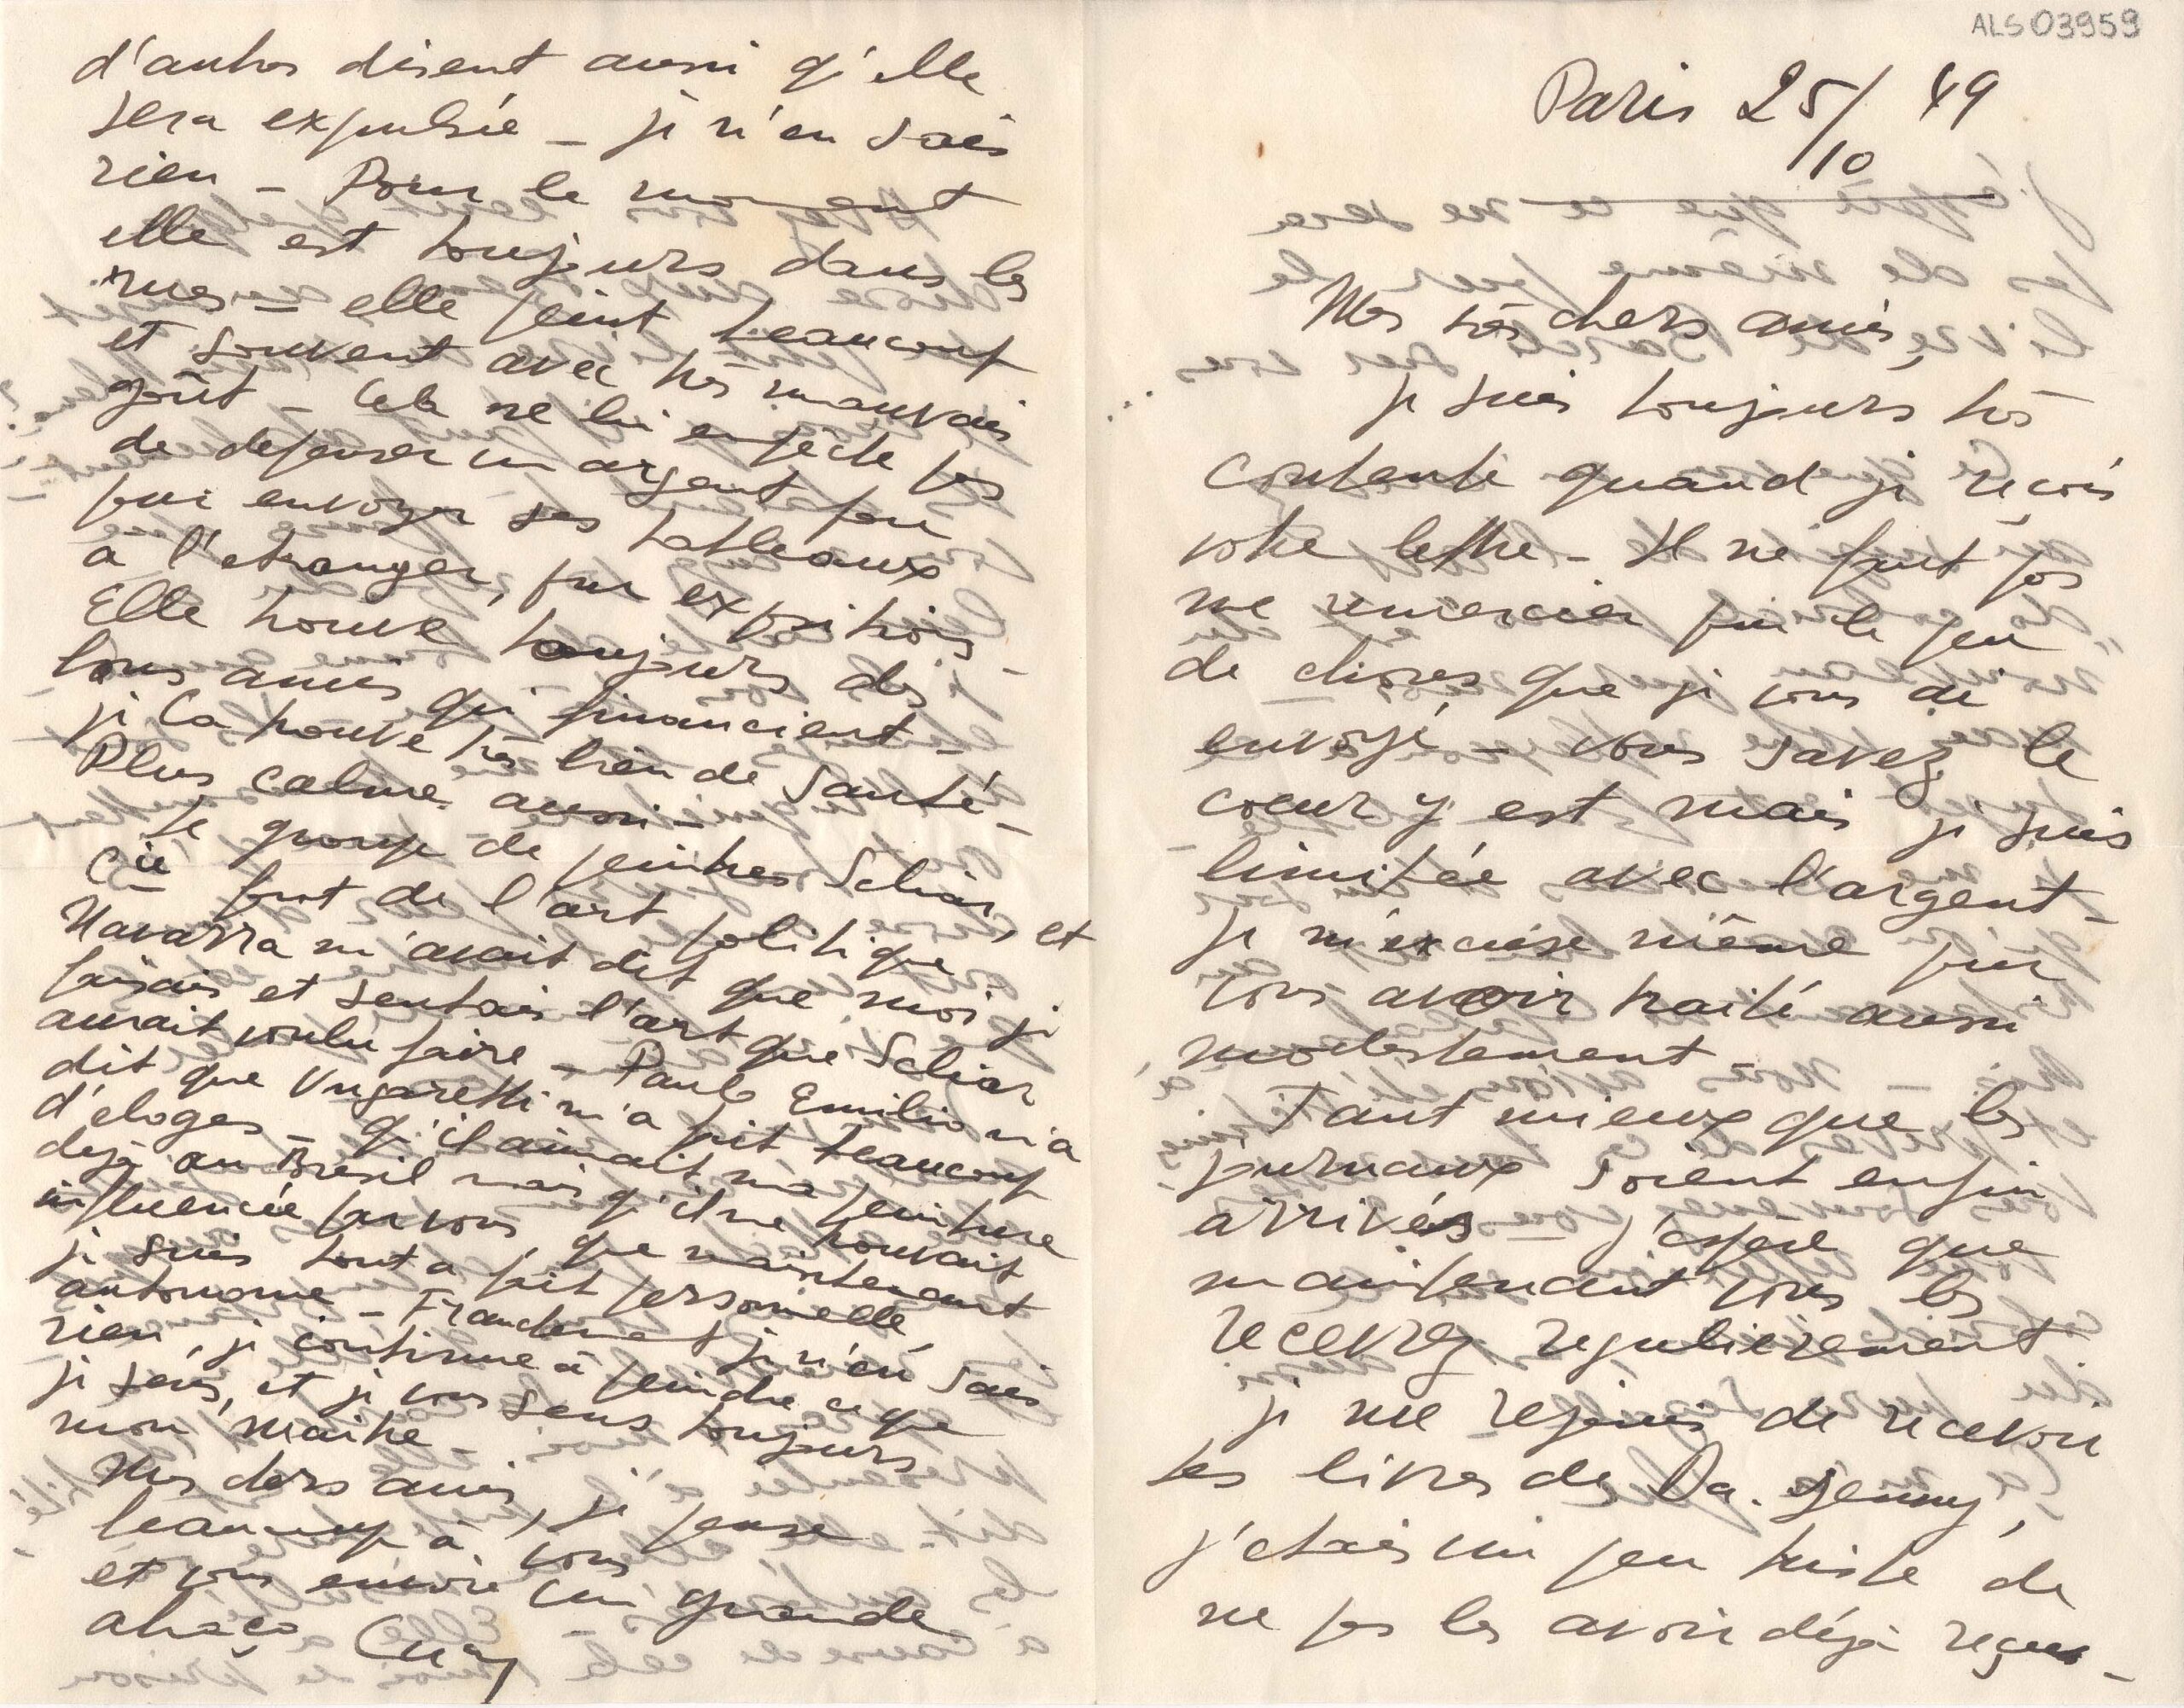 ALS 03959
Paris 25/10 49
Mes très chers amis,
je suis toujours très
contente quand je reçois
votre lettre – Il ne faut pas
me remercier pour le peu
de choses que je vous ai
envoyé – vous savez le
coeur y est mais je suis
limitée avec l'argent –
je m'excuse même pour
vous avoir traité aussi
modestement –
Tant mieux que les
journaux soient enfin
arrivés – j'espère que
maintenant vous les
recevrez regulièrement
je me rejouis de recevoir
les livres de Da. Jenny,
j'étais un peu triste de
ne pas les avoir déjà reçus –
d'autres disent aussi qu'elle
sera expulsée – je n'en sais
rien – Pour le moment
elle est toujours dans les
nues – elle peint beaucoup
et souvent avec très mauvais
goût – Cela ne lui empêche pas
de depenser un argent fou
pour envoyer ses tableaux
à l'etranger, pour expositions –
Elle trouve toujours des
bons amis qui financient –
je la trouve très bien de santé –
Plus calme aussi –
Le groupe de peintres Scliar, et
Cie font de l'art politique
Navarra m'avait dit que moi je
faisais et sentais l'art que Scliar
aurait voulu faire – Paulo Emilio m'a
dit que Ungaretti m'a fait beaucoup
d'eloges – qu'il aimait ma peinture
dejà au Bresil mais qu'il me trouvait
influencée par vous, que maintenant
je suis tout a fait personnelle,
autonome – Franchement je n'en sais
rien, je continue à peindre ce que
je sens, et je vous sens toujours
mon maitre –
Mes chers amis, je pense
beaucoup à vous
et vous envoie un grande
abraço